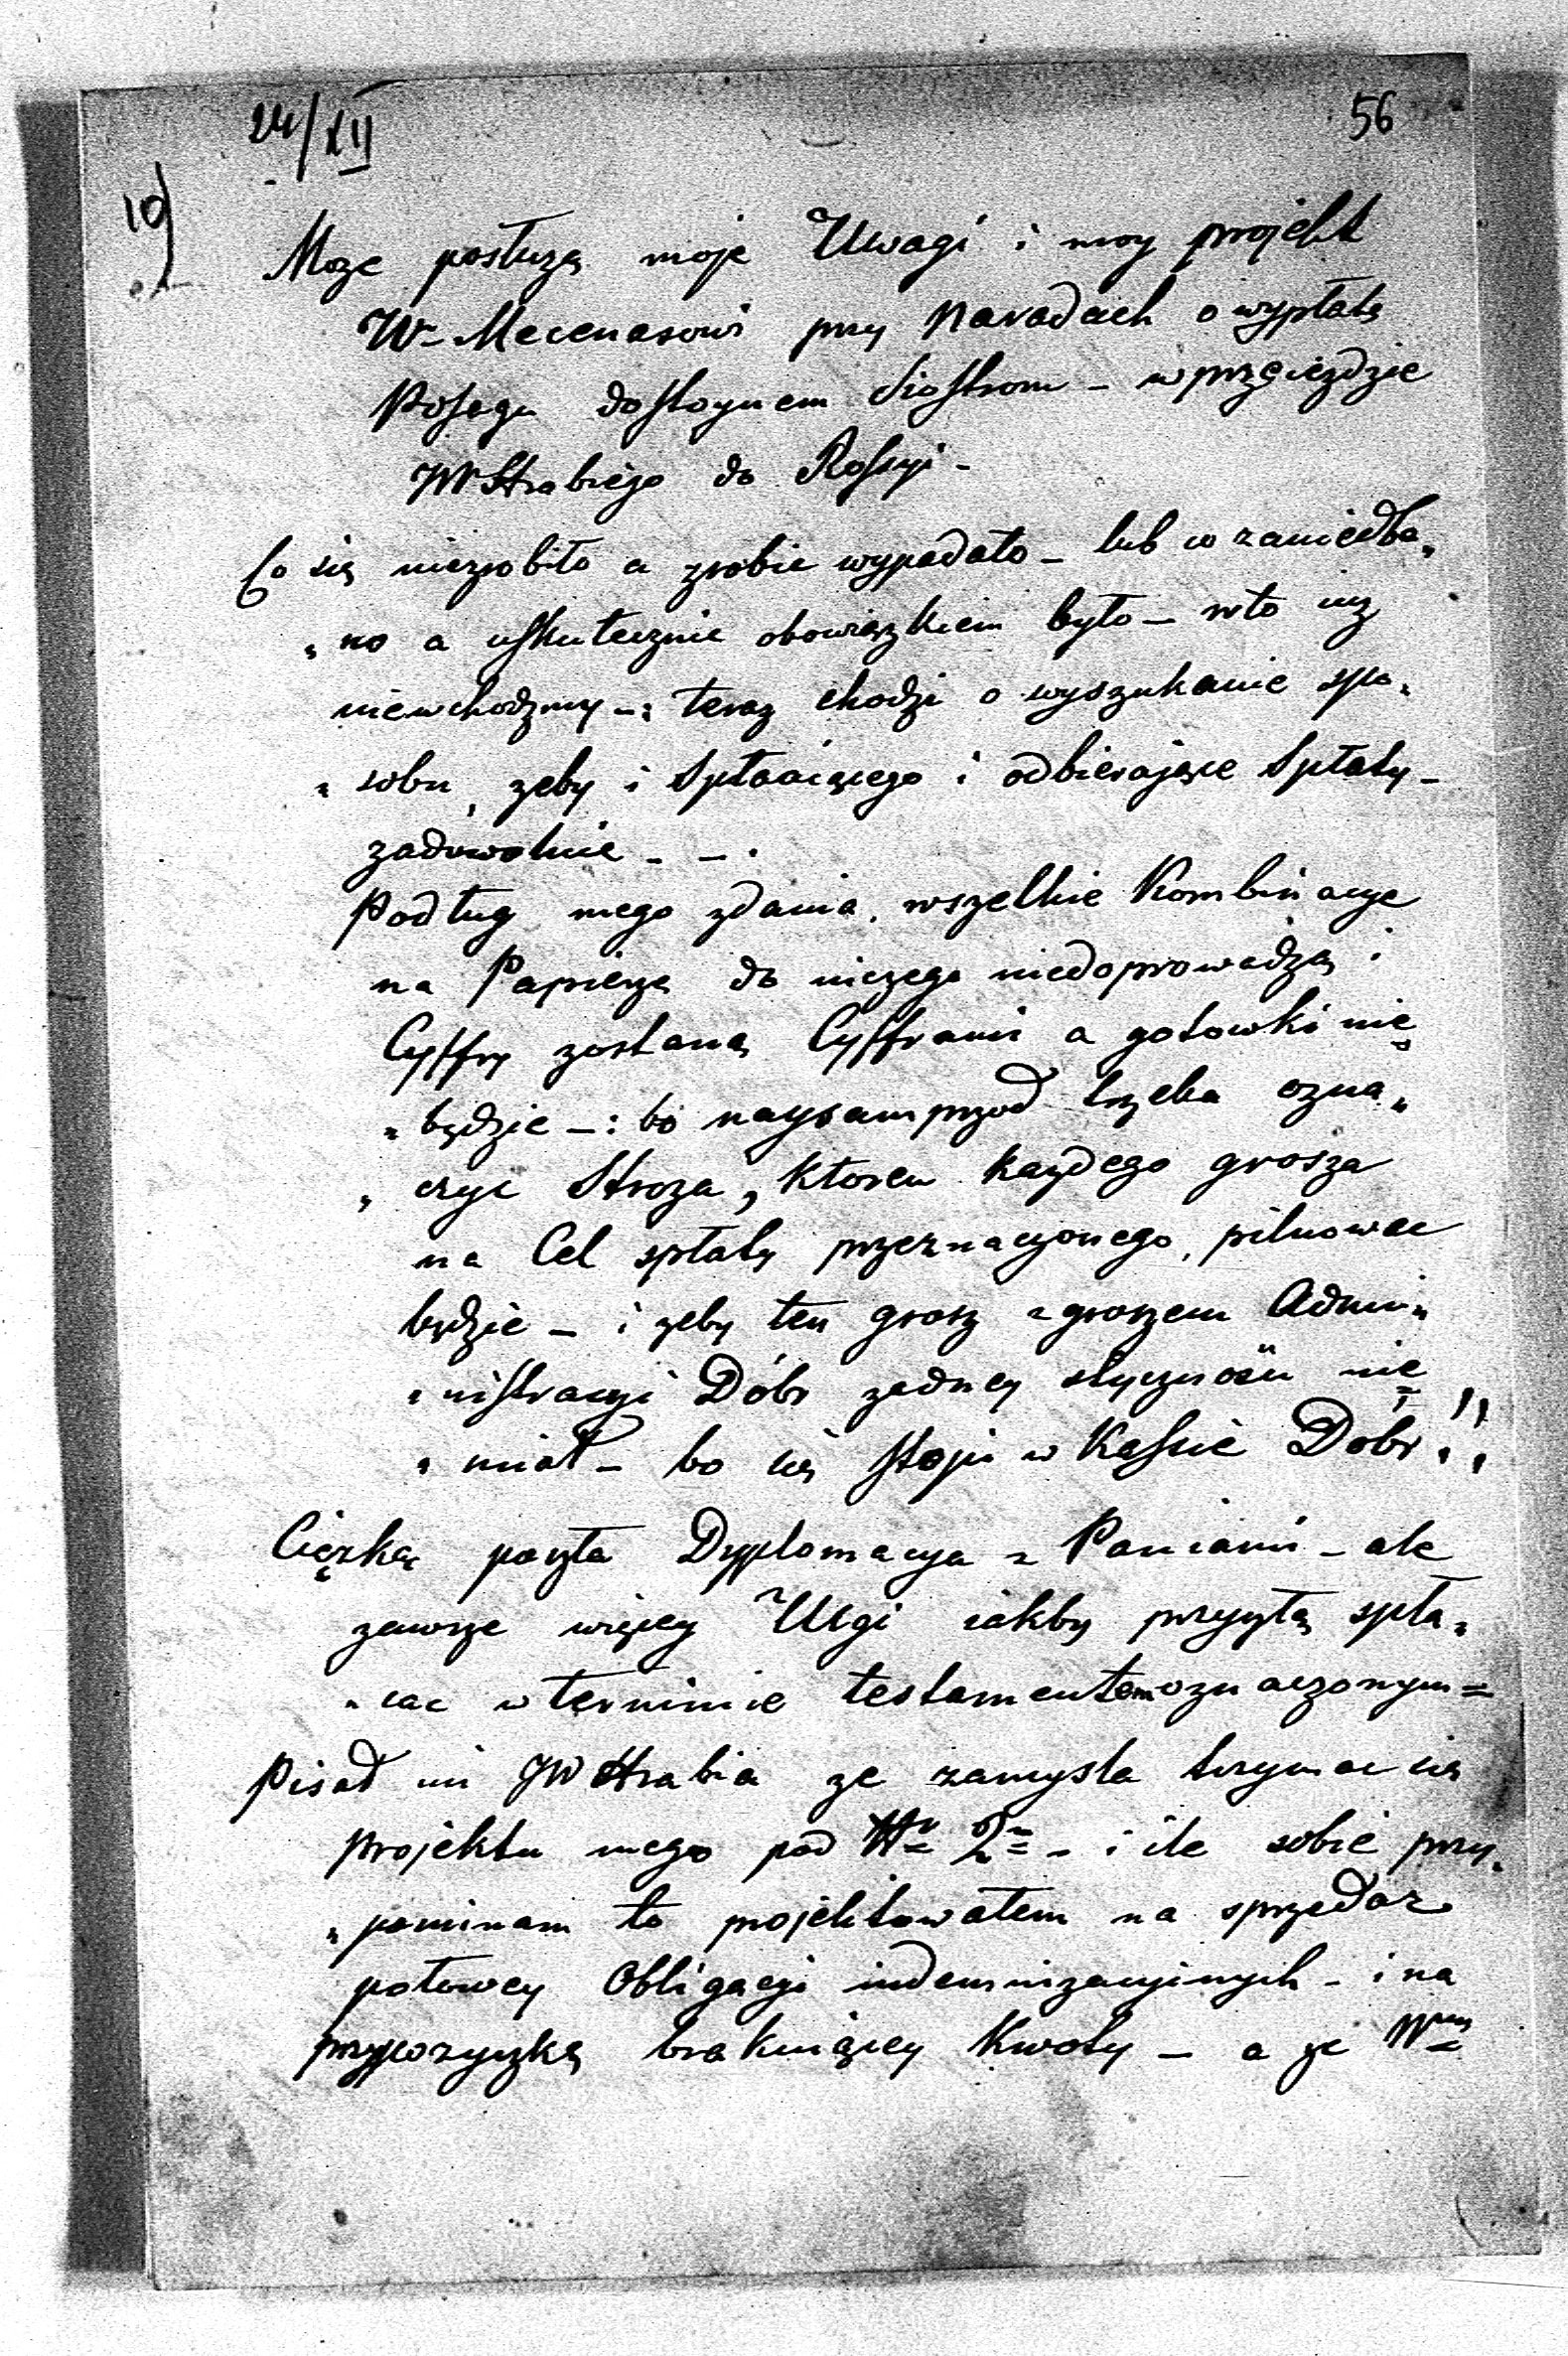 56
24/XII
10)
Moze posłuzą moje Uwagi i moy projekt
W- Mecenasowi przy Naradach o wypłatę
Posagu dostoynem Siostrom - w przejezdzie
JWHrabiego do Rossyi -
Co się niezrobiło a zrobic wypadało - lub co zaniedba„
„no a uskutecznic obowiązkiem było - w to iuz
niewchodzmy -: teraz chodzi o wyszukanie spo„
„sobu, zeby i Spłacaiącego i odbierające Spłaty -
zadowolnic - - .
Podług mego zdania, wszelkie Kombinacye
na Papierze do niczego niedoprowadzą i
Cyffry zostaną Cyframi a gotowki nie
„będzie -: bo naysamprzod trzeba ozna„
„czyc Stroza, ktoren kazdego grosza
na Cel spłaty przeznaczonego, pilnowac
będzie - i zeby ten grosz z groszem Admi„
„nistracyi Dóbr zadney stycznosci nie
„miał - bo się stopi w Kassie Dóbr!!
Cięzką poszła Dyplomacya z Paniami - ale
zawsze więcey Ulgi iakby przyszłą spła„
„cac w terminie testamentem oznaczonym =
Pisał mi JWHrabia ze zamysla trzymac się
projektu mego pod Nr 2 = - i ile sobie przy„
„pominam to projektowałem na sprzedaz
połowey Obligacyi indemnizacyinych - i na
przypozyczkę brakuiącey Kwoty - a ze